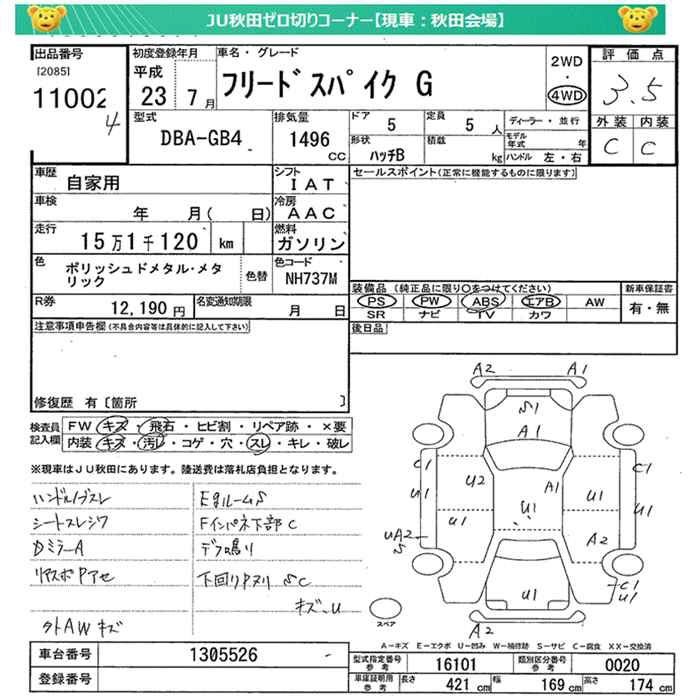 JU秋田ゼロ切りコーナー【現車：秋田会場】
出品番号 初度登録年月 車名・グレード 評価点
[2085] 平成 フリードスパイク G 2WD ・ 4WD 3.5
11002 4 23年 7月
型式 DBA-GB4 排気量 1496 CC ドア 5 定員 5人 ディーラー・並行 外装 内装
形状 ハッチB 積載 kg モデル年式 年 ハンドル 左・右 C C
車歴 自家用 シフト IAT セールスポイント(正常に機能するものに限ります)
車検 年 月( 日) 冷房 AAC
走行 15万1千120 km 燃料 ガソリン
色 ポリッシュドメタル・メタリック 色替 色コード NH737M
装備品 (純正品に限り○をつけてください) 新車保証書
R券 12,190円 名変通知期限 月 日 PS PW ABS エアB AW 有・無
SR ナビ TV カワ
注意事項申告欄(不具合内容等は具体的に記入して下さい) 後日品
修復歴 有 [箇所 ]
検査員記入欄 FW キズ・飛石・ヒビ割・リペア跡・×要
内装 キズ・汚レ・コゲ・穴・スレ・キレ・破レ
※現車はJU秋田にあります。陸送費は落札店負担となります。
ハンドル/ブスレ Egルーム S
シートスレシワ Fインパネ下部 C
Dミラー A デフ鳴り
リアスポPアセ 下回りPヌリ SC
キズ・U
外AWキズ
A2 A1
S1
A1
C1 U2 A1 C1
U1 U1 U1 U1 U1
UA2 S A2
C1
U1 U1
A2
スペア
A-キズ E-エクボ U-凹み W-補修跡 S-サビ C-腐食 XX-交換済
車台番号 1305526 型式指定番号 参考 16101 類別区分番号 参考 0020
登録番号 車庫証明用 参考 長さ 421cm 幅 169cm 高さ 174cm